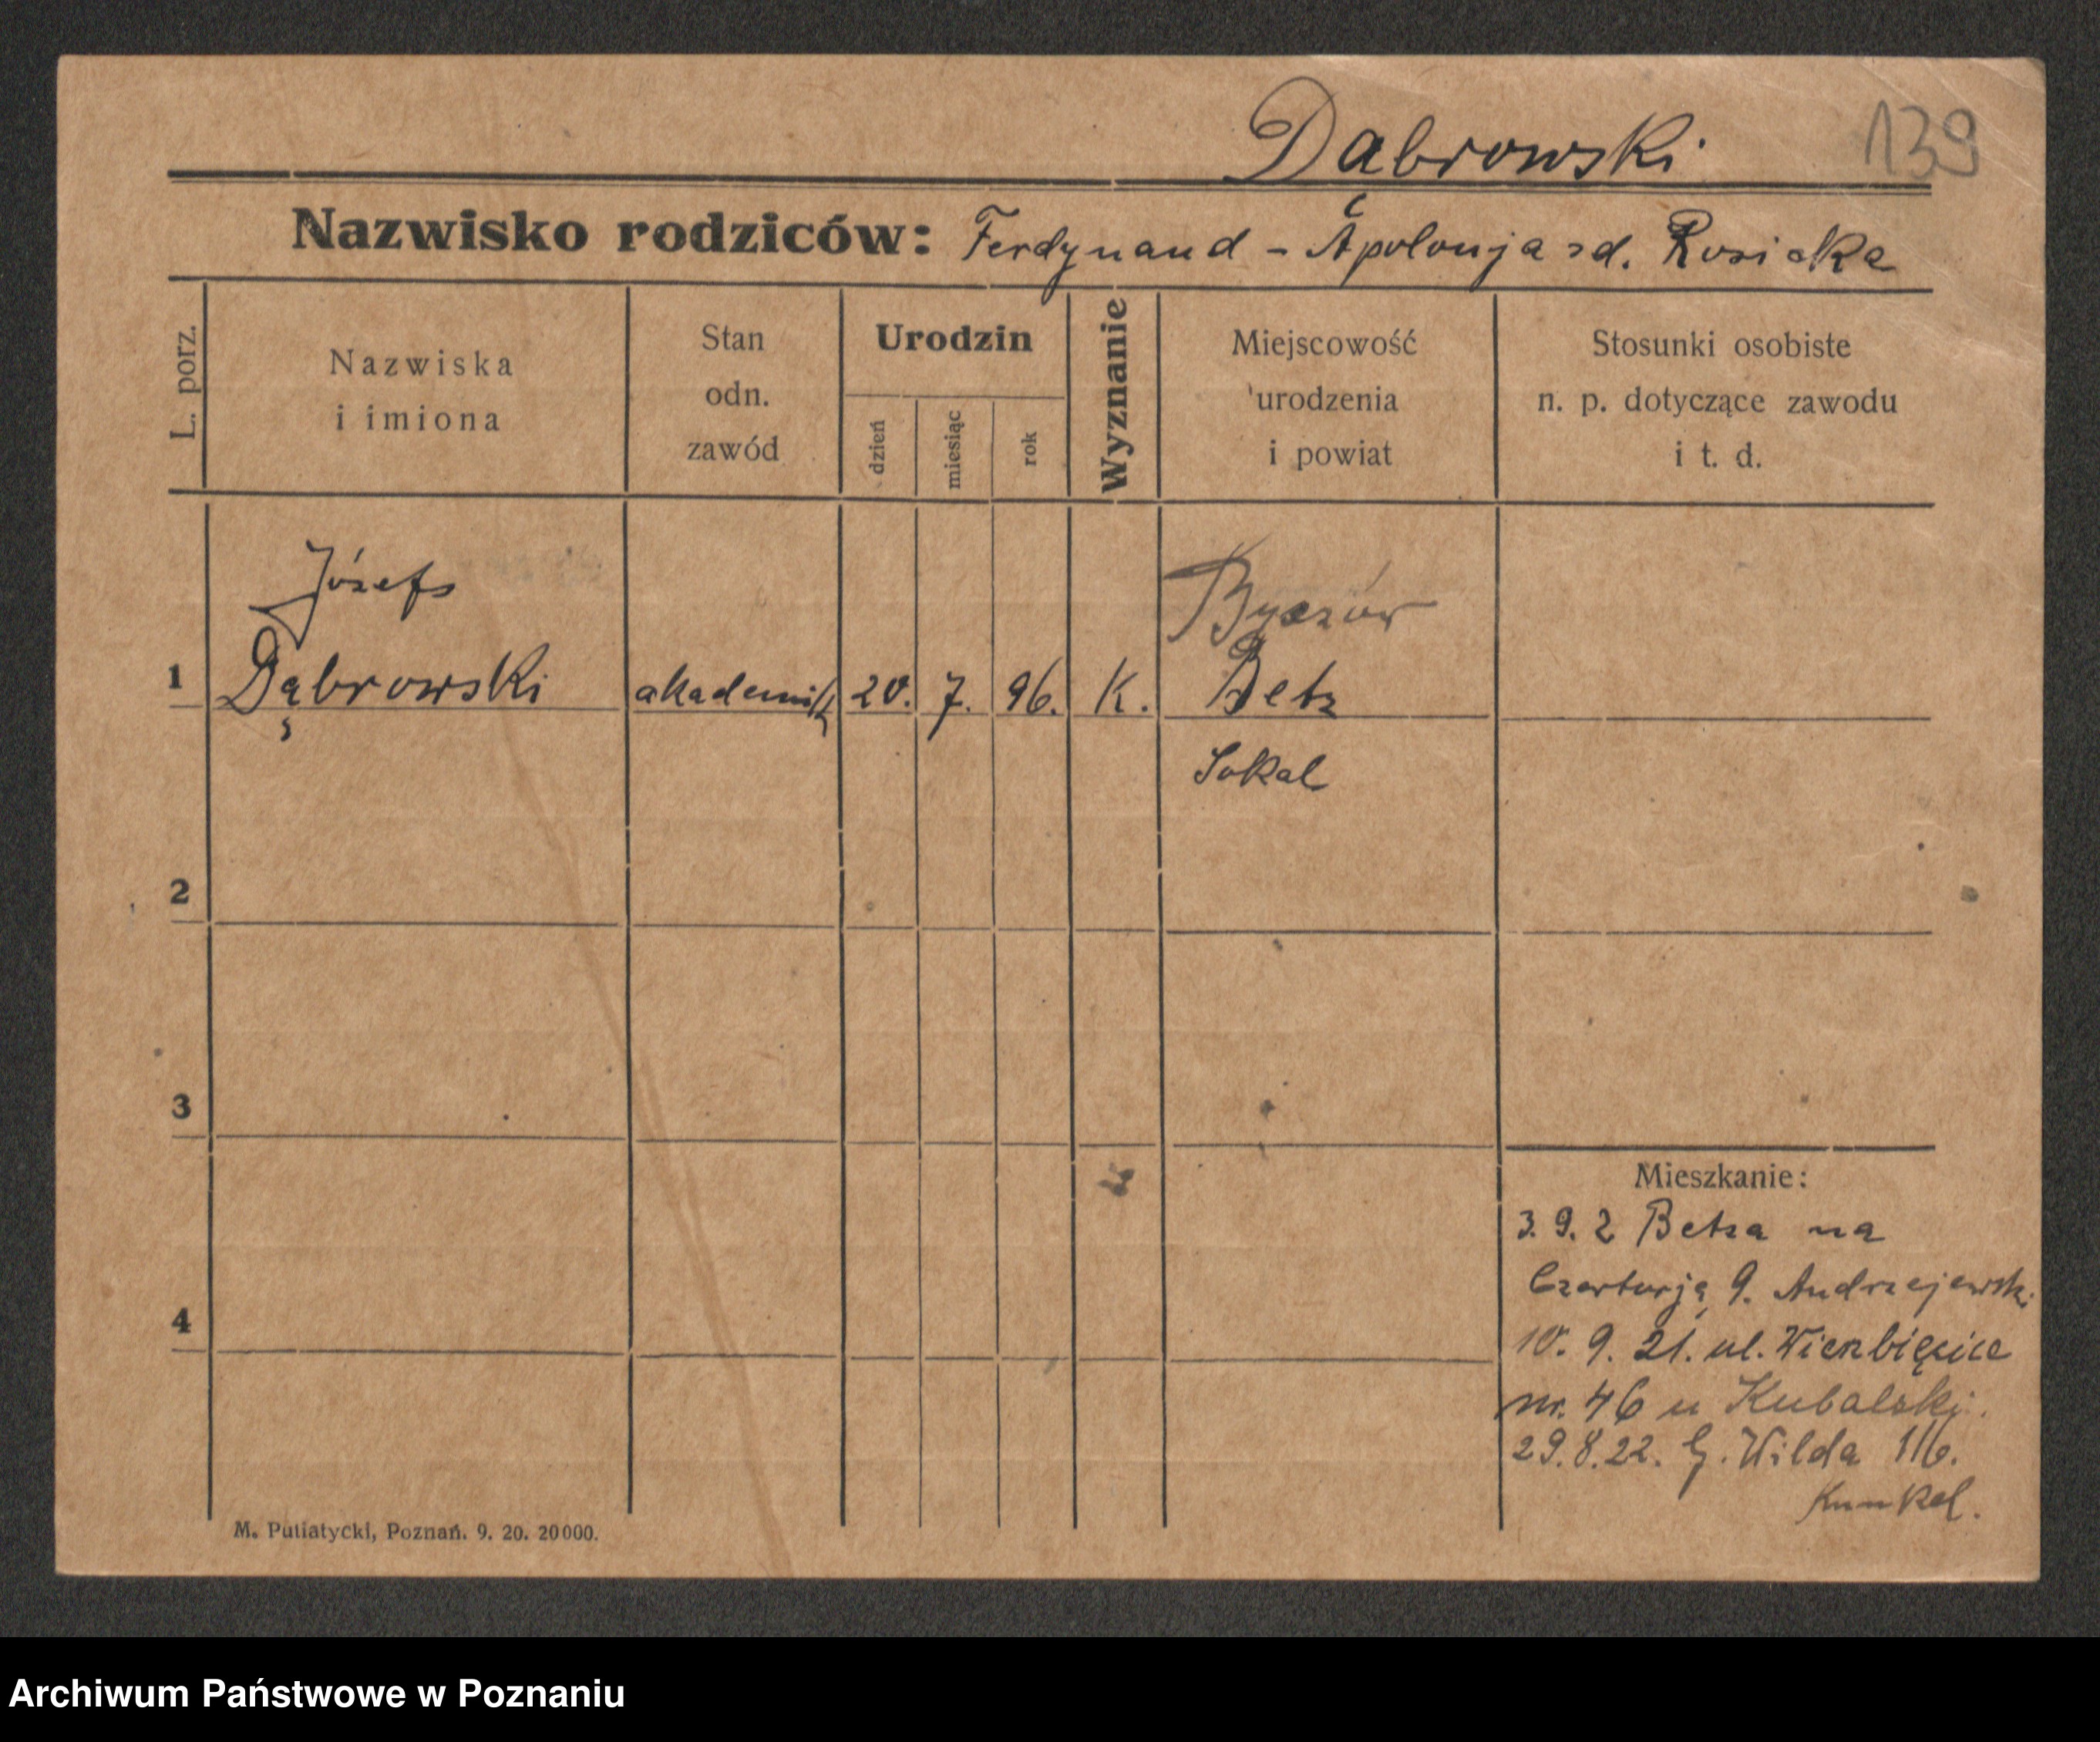 Dąbrowski 139
Nazwisko rodziców: Ferdynand - Apolonja zd. Rosicka
L. porz.
Nazwiska
i imiona
Stan
odn.
zawód
Urodzin
dzień
miesiąc
rok
Wyznanie
Miejscowość
urodzenia
i powiat
Stosunki osobiste
n. p. dotyczące zawodu
i t. d.
Józef
1 Dąbrowski akademik 20. 7. 96. K.
Bełz
Sokal
2
3
4
Mieszkanie:
3. 9. 2 Bełza na
9. Andrzejewski
10. 9. 21. ul. Wierzbięcice
nr. 46 u Kubalski.
29.8.22. G. Wilda 116.
Kunkel.
M. Putiatycki, Poznań. 9. 20. 20000.
Archiwum Państwowe w Poznaniu